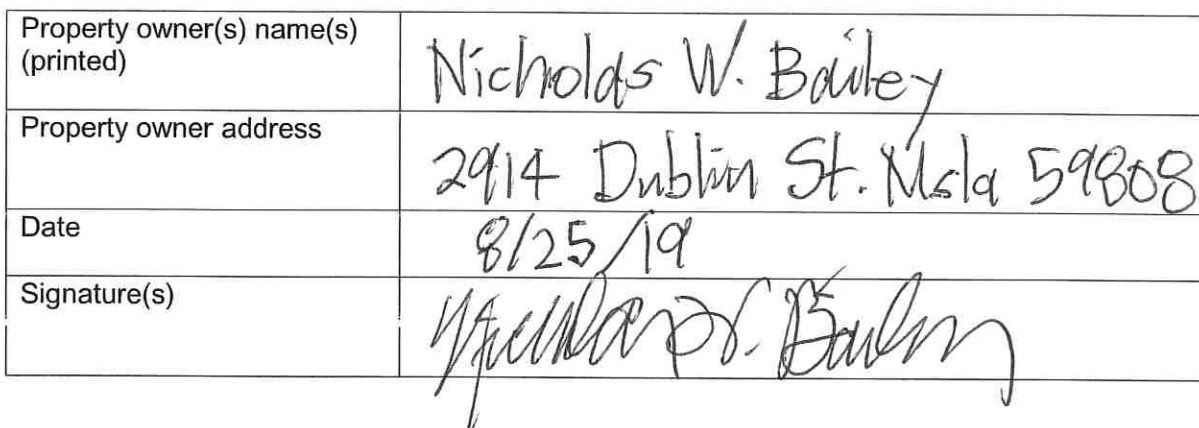 Property owner(s) name(s)
(printed)
Nicholas W. Bailey
Property owner address
2914 Dublin St. Msla 59808
Date
8/25/19
Signature(s)
Nicholas W. Bailey